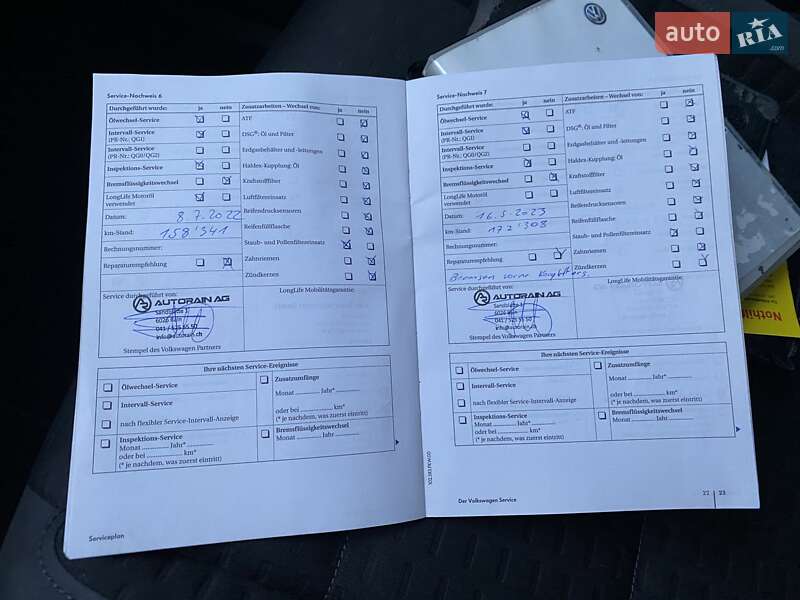 auto RIA
.com
Nothilf
Service-Nachweis 6
Durchgeführt wurde: ja nein Zusatzarbeiten – Wechsel von: ja nein
Ölwechsel-Service
ATF
Intervall-Service
(PR-Nr.: QG1)
DSG®: Öl und Filter
Intervall-Service
(PR-Nr.: QG0/QG2)
Erdgasbehälter und -leitungen
Inspektions-Service
Haldex-Kupplung: Öl
Bremsflüssigkeitswechsel
Kraftstofffilter
LongLife Motoröl
verwendet
Luftfiltereinsatz
Datum: 8.7.2022
Reifendrucksensoren
km-Stand: 158'341
Reifenfüllflasche
Rechnungsnummer:
Staub- und Pollenfiltereinsatz
Reparaturempfehlung
Zahnriemen
Zündkerzen
Service durchgeführt von:
LongLife Mobilitätsgarantie:
AUTORAIN AG
Sandstraße 1
6026 Rain
041 / 525 55 50
info@autorain.ch
Stempel des Volkswagen Partners
Ihre nächsten Service-Ereignisse
Ölwechsel-Service
Zusatzumfänge
Monat Jahr*
oder bei km*
(* je nachdem, was zuerst eintritt)
Intervall-Service
nach flexibler Service-Intervall-Anzeige
Inspektions-Service
Monat Jahr*
oder bei km*
(* je nachdem, was zuerst eintritt)
Bremsflüssigkeitswechsel
Monat Jahr
Serviceplan
Service-Nachweis 7
Durchgeführt wurde: ja nein Zusatzarbeiten – Wechsel von: ja nein
Ölwechsel-Service
ATF
Intervall-Service
(PR-Nr.: QG1)
DSG®: Öl und Filter
Intervall-Service
(PR-Nr.: QG0/QG2)
Erdgasbehälter und -leitungen
Inspektions-Service
Haldex-Kupplung: Öl
Bremsflüssigkeitswechsel
Kraftstofffilter
LongLife Motoröl
verwendet
Luftfiltereinsatz
Datum: 16.5.2023
Reifendrucksensoren
km-Stand: 172'308
Reifenfüllflasche
Rechnungsnummer:
Staub- und Pollenfiltereinsatz
Reparaturempfehlung
Zahnriemen
Bremsen vorne
Zündkerzen
Service durchgeführt von:
LongLife Mobilitätsgarantie:
AUTORAIN AG
Sandstraße 1
6026 Rain
041 / 525 55 50
info@autorain.ch
Stempel des Volkswagen Partners
Ihre nächsten Service-Ereignisse
Ölwechsel-Service
Zusatzumfänge
Monat Jahr*
oder bei km*
(* je nachdem, was zuerst eintritt)
Intervall-Service
nach flexibler Service-Intervall-Anzeige
Inspektions-Service
Monat Jahr*
oder bei km*
(* je nachdem, was zuerst eintritt)
Bremsflüssigkeitswechsel
Monat Jahr
Der Volkswagen Service
22 23